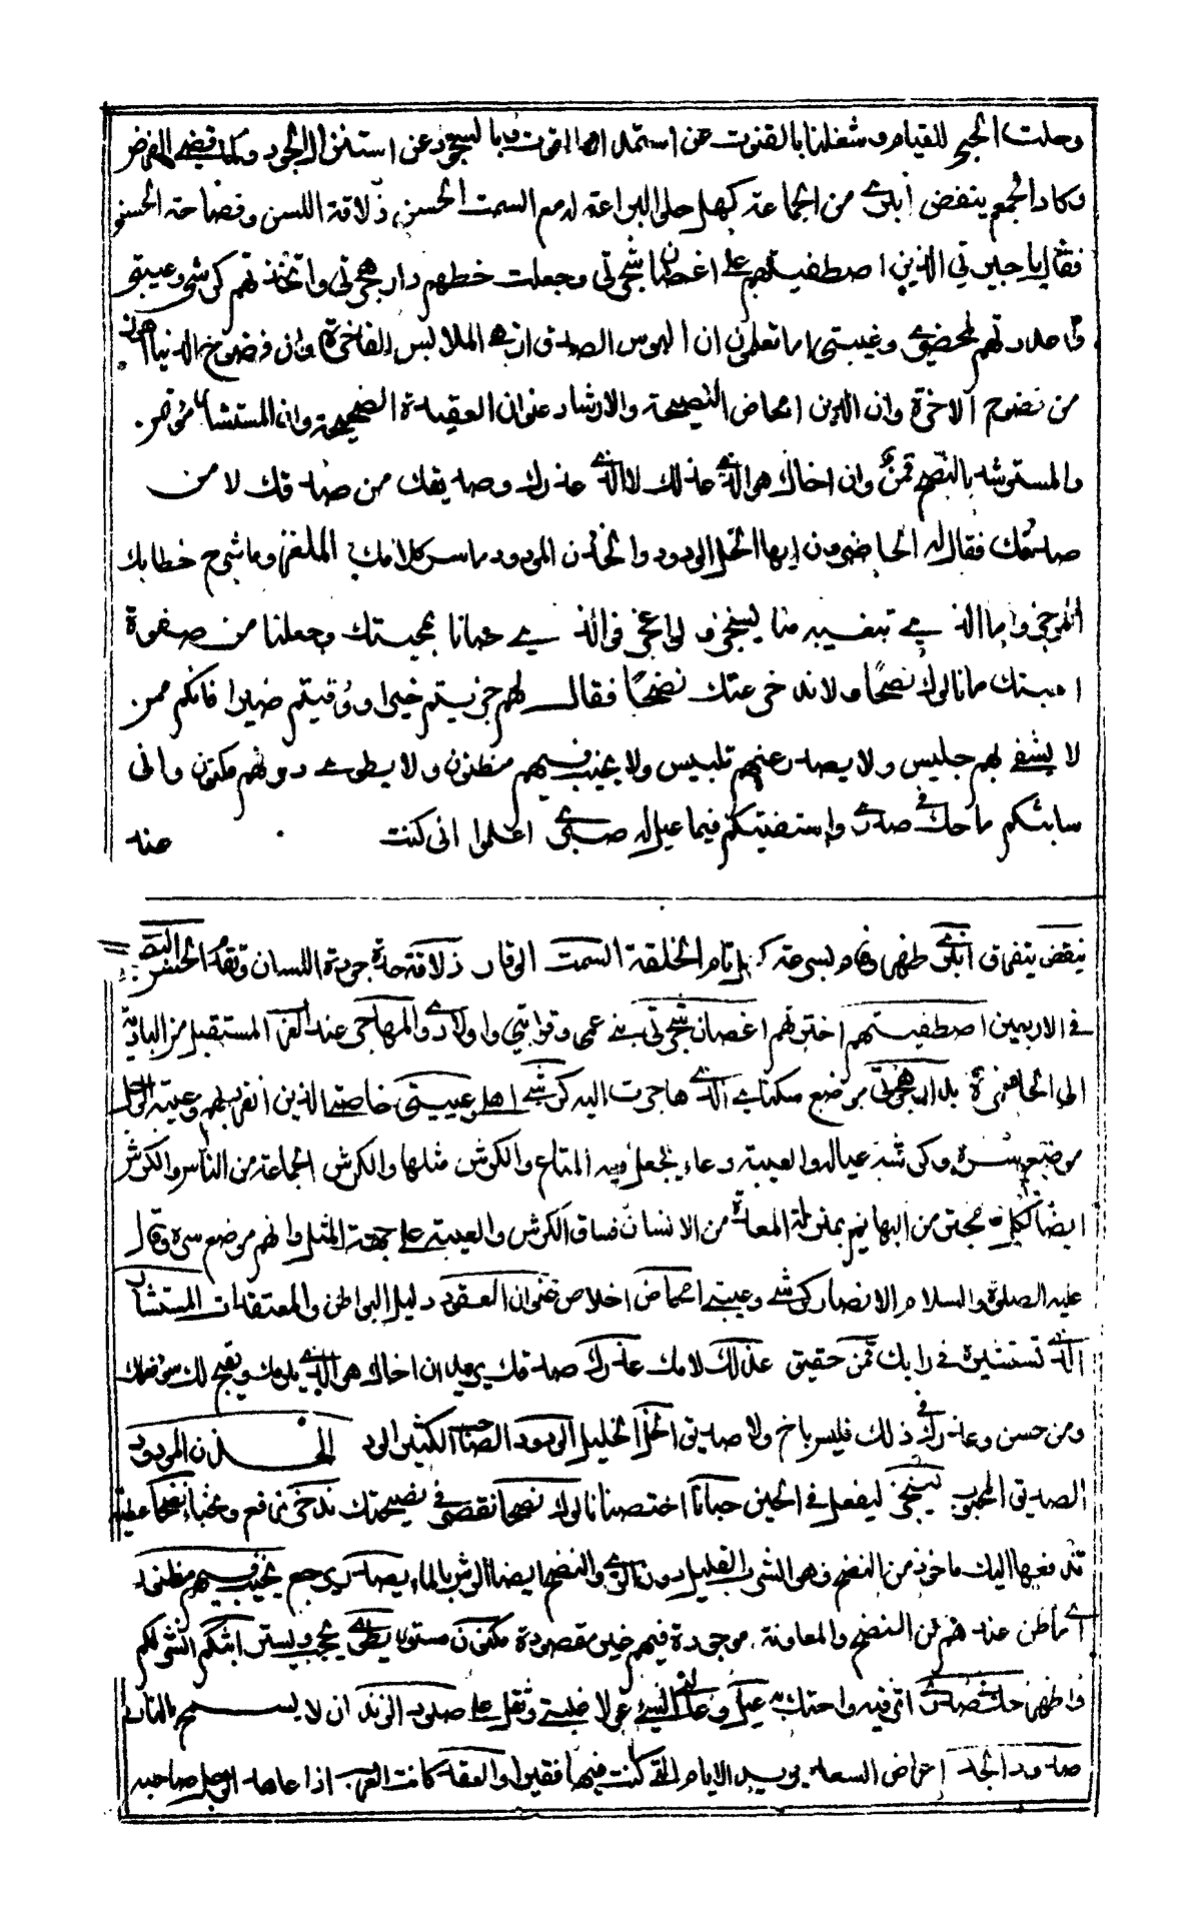 وحلت الحبى للقيام وشغلنا بالقنوت عن استمداد القوت وبالسجود عن استنزال الجود ولما قضي الفرض
وكاد الجمع ينفض انبرى من الجماعة كهل حلو البراعة له مع السمت الحسن ذلاقة اللسن وفصاحة الحسن
فقال يا جيرتي الذين اصطفيتهم على اغصان شجرتي وجعلت خطتهم دار هجرتي واتخذتهم كرشي وعيبتي
واعددتهم لمحضري وغيبتي اما تعلمون ان لبوس الصدق ابهى الملابس الفاخرة وان فضوح الدنيا اهون
من فضوح الاخرة وان الدين امحاض النصيحة والارشاد عنوان العقيدة الصحيحة وان المستشار مؤتمن
والمسترشد بالنصح قمن وان اخاك هو الذي عذلك لا الذي عذرك وصديقك من صدقك لا من
صدقك فقال له الحاضرون ايها الخل الودود والخدن المودود ما سر كلامك الملغز وما شرح خطابك
الموجز وما الذي تبغيه منا لينجز ولو اعجز فوالذي حبانا بمحبتك وجعلنا من صفوة
احبتك ما نالوك نصحا ولا ندخر عنك نضحا فقال لهم جزيتم خيرا ووقيتم ضيرا فانكم ممن
لا يشقى بهم جليس ولا يصدر عنهم تلبيس ولا يخيب فيهم مظنون ولا يطوى دونهم مكنون واني
سابثكم ما حك في صدري واستفتيكم فيما عيل له صبري اعلموا اني كنت عند
ينفض يتفرق انبرى ظهر وقام بسرعة كهل تام الخلقة السمت الوقار ذلاقة حدة جودة اللسان
في الاربعين اصطفيتهم اخترتهم اغصان شجرتي بني عمي وقرابتي واولادي والمهاجر عند العرب المستقبل من البادية
الى الحاضرة بدار هجرتي موضع سكناي الذي هاجرت اليه كرشي اهلي وعيبتي خاصتي الذين انفرد بهم وعيبة الرجل
موضع سره وكرشه عياله والعيبة وعاء يجعل فيه المتاع والكرش مثلها والكرش الجماعة من الناس والكرش
ايضا لكل مجتر من البهائم بمنزلة المعدة من الانسان فساق الكرش والعيبة على جهة المثل وانهم موضع سره وقال
عليه الصلوة والسلام الانصار كرشي وعيبتي امحاض اخلاص عنوان العقود دليل البواطن والمعتقدات المستشار
الذي تستشيره في رايك قمن حقيق عذلك لامك عذرك صدقك يريد ان اخاك هو الذي يلومك ويقبح لك
ومن حسن وعذرك في ذلك فليس باخ ولا صديق الخل الخليل الودود الصاحب الكثير الود الخدن المودود
الصديق المحبوب لينجز ليفعل في الحين حبانا اختصنا نالوك نصحا نقصر في نصيحتك ندخر نرفع ونخبا نضحا عطية
ندفعها اليك ماخوذ من النضح وهو الشرب القليل دون الري والنضح ايضا الرش بالماء يصدر يرجع يخيب فيهم مظنون
اي ما ظن عندهم من النصح والمعاونة موجودة فيهم غير مقصودة مكنون مستور يطوى يحجب ويستر ابثكم انشر لكم
واظهر حك في صدري اثر فيه واحتك به عيل وعال الشيء عولا غلبني وثقل علي صلود الزند ان لا يسمح بالنار
صدود الجد اعراض السعد يريد الايام التي كنت فيها فقيرا والعقد كانت العرب اذا عاهد الرجل صاحبه